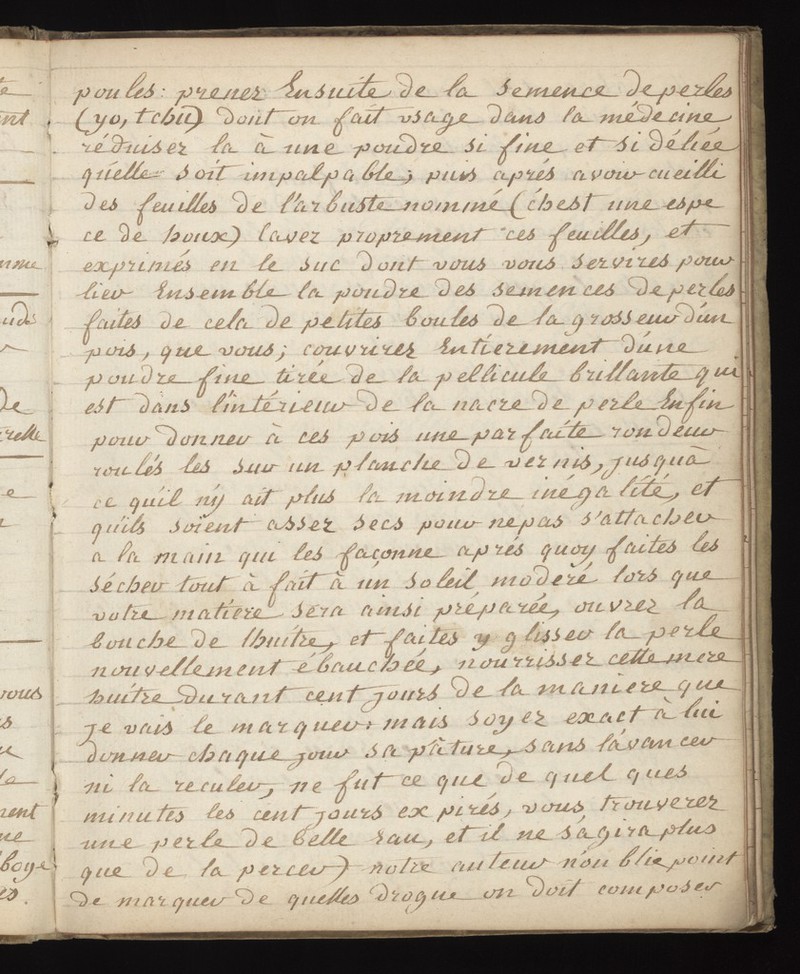 te
ant
mme
ude
De
relle
e
vous
is
ment
ne
boye
es.
poules: prenez Ensuite de la semence de perles
(yo, tchu) dont on fait vsage dans la médecine
réduisez la à une poudre si fine et si déliée
qúelle soit impalpable; puis aprés avoir cueilli
des feuilles de l'arbuste nommé (chest une espe
ce de houx) lavez proprement ces feuilles, et
exprimés en le suc dont vous vous servirés pour
lier Ensemble la poudre des semences de perles
faites de cela de petites boules de la grosseur d'un
pois, que vous; couvrirez Entierement d'une
poudre fine tirée de la pellicule brillante qui
est dans l'intérieur de la nacre de perle Enfin
pour donner à ces pois une parfaite rondeur
roulés les sur un planche de vernis, jusquà
ce qu'il n'y ait plus la moindre inégalité, et
qu'ils soient assez secs pour nepas s'attacher
a la main qui les façonne aprés quoy faites les
sécher tout à fait à un soleil moderé lors que
votre matiere sera ainsi préparée, ouvrez la
bouche de lhuitre, et faites y glisser la perle
nouvellement ébauchée, nourrissez cette mere
huitre durant cent jours de la maniere que
je vais le marquer: mais soyez exact à lui
donner chaque jour sa pâture, sans lávancer
ni la reculer, ne fut ce que de quel ques
minutes les cent jours expirés, vous trouverez
une perle de belle Eau, et il ne s'ágira plus
que de la percer) notre auteur n'oublie point
de marquer de quelles drogue on doit composer